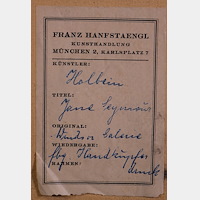 FRANZ HANFSTAENGL
KUNSTHANDLUNG
MÜNCHEN 2, KARLSPLATZ 7
KÜNSTLER:
Holbein
TITEL:
Jane Seymour
ORIGINAL:
Windsor Galerie
WIEDERGABE:
fbg Handkupfer
RAHMEN:
druck